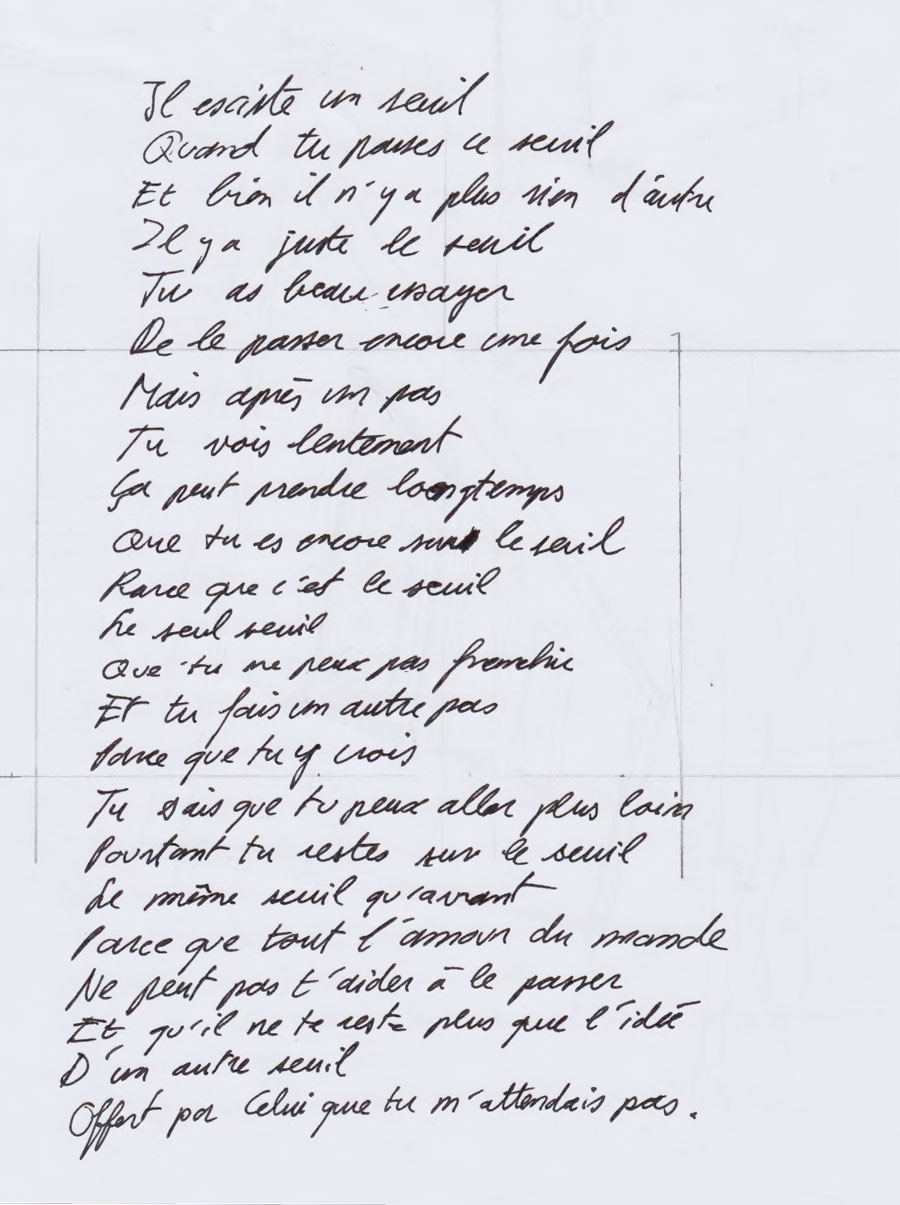 Il existe un seuil
Quand tu passes ce seuil
Et bien il n'y a plus rien d'autre
Il y a juste le seuil
Tu as beau essayer
De le passer encore une fois
Mais après un pas
Tu vois lentement
Ça peut prendre longtemps
Que tu es encore sur le seuil
Parce que c'est le seuil
Le seul seuil
Que tu ne peux pas franchir
Et tu fais un autre pas
Parce que tu y crois
Tu sais que tu peux aller plus loin
Pourtant tu restes sur le seuil
Le même seuil qu'avant
Parce que tout l'amour du monde
Ne peut pas t'aider à le passer
Et qu'il ne te reste plus que l'idée
D'un autre seuil
Offert par Celui que tu n'attendais pas.